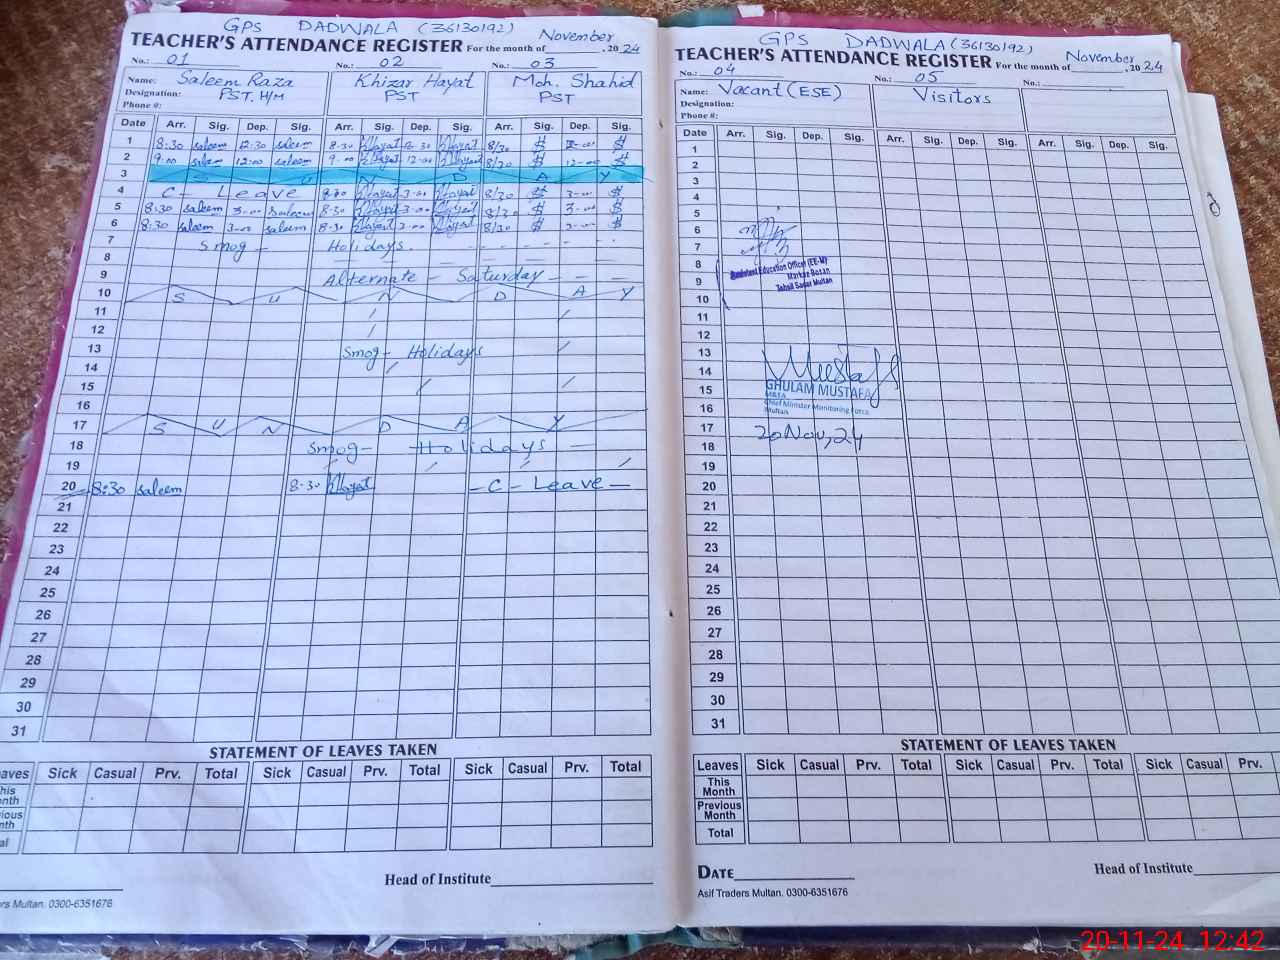 GPS DADWALA (36130192)
TEACHER'S ATTENDANCE REGISTER For the month of November, 2024
No.: 01 No.: 02 No.: 03
Name: Saleem Raza Khizar Hayat Moh. Shahid
Designation: PST. H/M PST PST
Phone #:
Date Arr. Sig. Dep. Sig. Arr. Sig. Dep. Sig. Arr. Sig. Dep. Sig.
1 8:30 saleem 12:30 saleem 8-30 Hayat 12-30 Hayat 8/30 $ $
2 9:00 saleem 12:00 saleem 9-00 Hayat 12-00 Hayat 8/30 $ 12-00 $
3 S U N D A Y
4 C - Leave 8-30 Hayat 3-00 Hayat 8/30 $ 3-00 $
5 8:30 saleem 3-00 saleem 8-30 Hayat 3-00 Hayat 8/30 $ 3-00 $
6 8:30 saleem 3-00 saleem 8-30 Hayat 3-00 Hayat 8/30 $ 3-00 $
7 Smog - Holidays.
8
9 Alternate - Saturday
10 S U N D A Y
11
12
13 Smog - Holidays
14
15
16
17 S U N D A Y
18 Smog - Holidays
19
20 8:30 saleem 8-30 Hayat - C - Leave -
21
22
23
24
25
26
27
28
29
30
31
STATEMENT OF LEAVES TAKEN
aves Sick Casual Prv. Total Sick Casual Prv. Total Sick Casual Prv. Total
his
nth
ious
nth
al
Head of Institute
rs Multan. 0300-6351676
GPS DADWALA (36130192)
TEACHER'S ATTENDANCE REGISTER For the month of November, 2024
No.: 04 No.: 05 No.:
Name: Vacant (ESE) Visitors
Designation:
Phone #:
Date Arr. Sig. Dep. Sig. Arr. Sig. Dep. Sig. Arr. Sig. Dep. Sig.
1
2
3
4
5
6
7
8 Assistant Education Officer (EE-M)
Markaz Bosan
9 Tehsil Sadar Multan
10
11
12
13
14 Mustafa
15 GHULAM MUSTAFA
MEA
16 Chief Minister Monitoring Force
Multan
17 20 Nov, 24
18
19
20
21
22
23
24
25
26
27
28
29
30
31
STATEMENT OF LEAVES TAKEN
Leaves Sick Casual Prv. Total Sick Casual Prv. Total Sick Casual Prv.
This Month
Previous Month
Total
DATE
Head of Institute
Asif Traders Multan. 0300-6351676
20-11-24 12:42